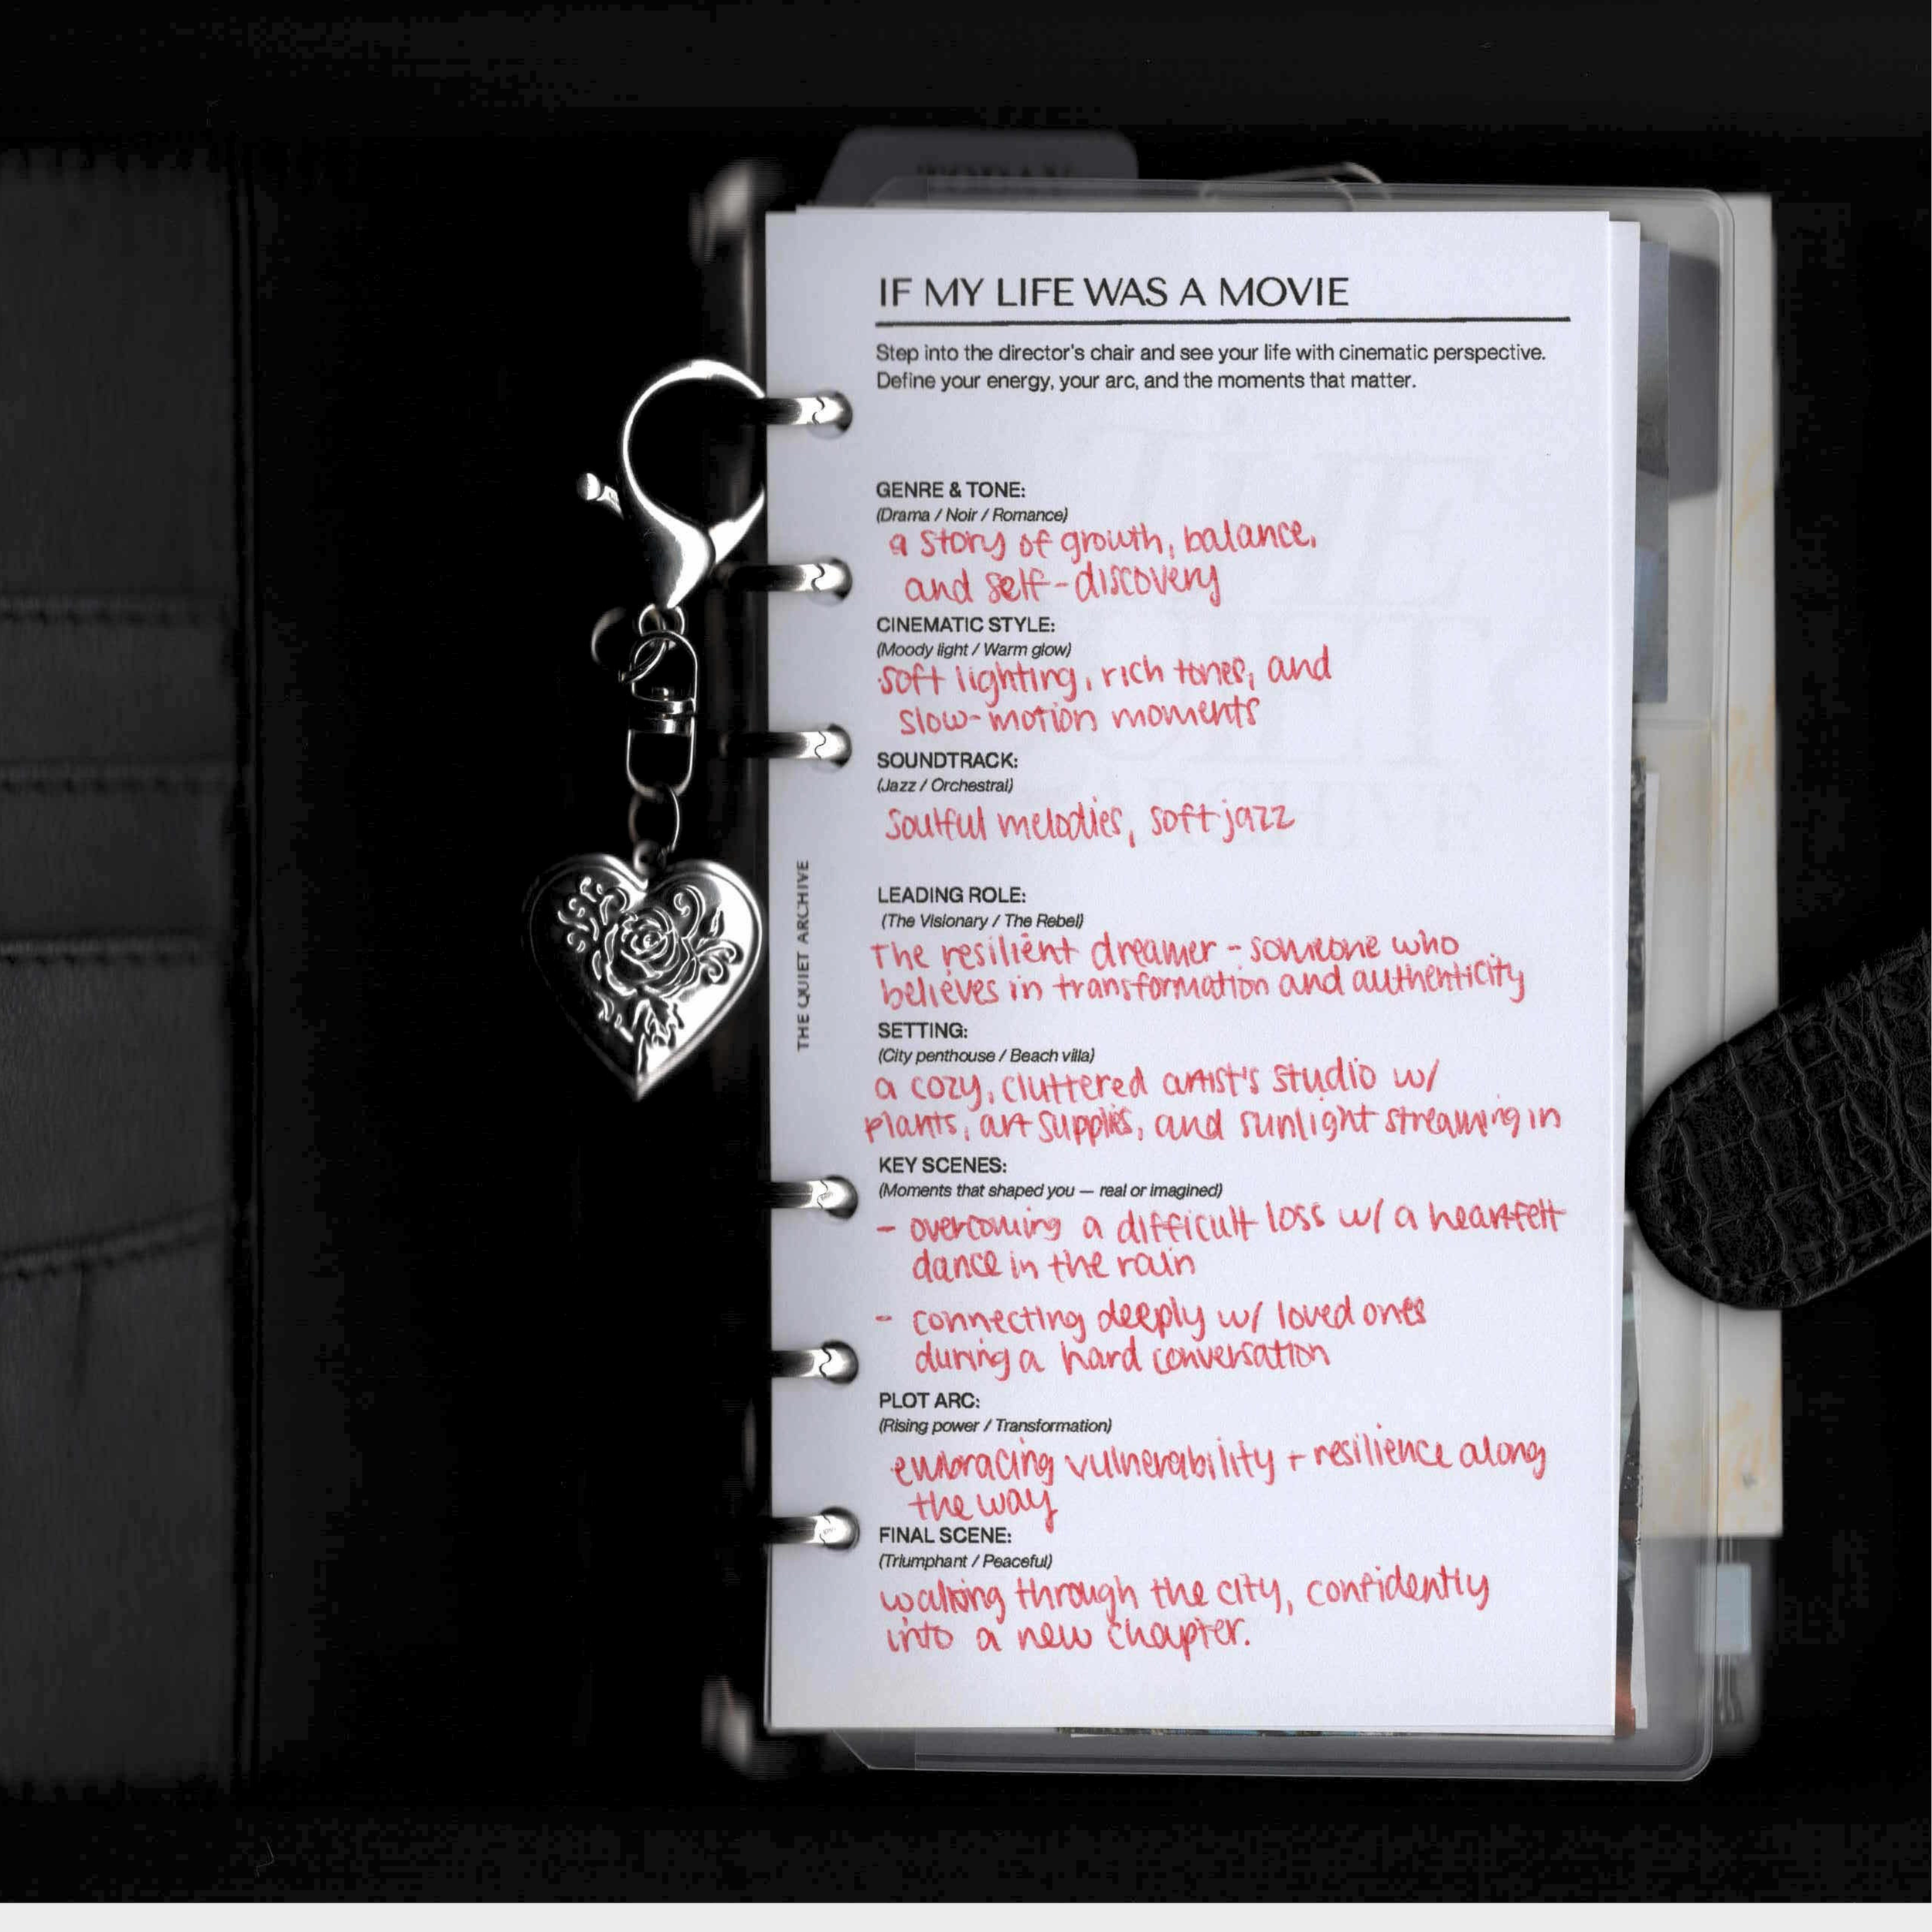 IF MY LIFE WAS A MOVIE
Step into the director's chair and see your life with cinematic perspective.
Define your energy, your arc, and the moments that matter.
GENRE & TONE:
(Drama / Noir / Romance)
a story of growth, balance,
and self-discovery
CINEMATIC STYLE:
(Moody light / Warm glow)
soft lighting, rich tones, and
slow-motion moments
SOUNDTRACK:
(Jazz / Orchestral)
soulful melodies, soft jazz
THE QUIET ARCHIVE
LEADING ROLE:
(The Visionary / The Rebel)
The resilient dreamer - someone who
believes in transformation and authenticity
SETTING:
(City penthouse / Beach villa)
a cozy, cluttered artist's studio w/
plants, art supplies, and sunlight streaming in
KEY SCENES:
(Moments that shaped you — real or imagined)
- overcoming a difficult loss w/ a heartfelt
dance in the rain
- connecting deeply w/ loved ones
during a hard conversation
PLOT ARC:
(Rising power / Transformation)
embracing vulnerability + resilience along
the way
FINAL SCENE:
(Triumphant / Peaceful)
walking through the city, confidently
into a new chapter.